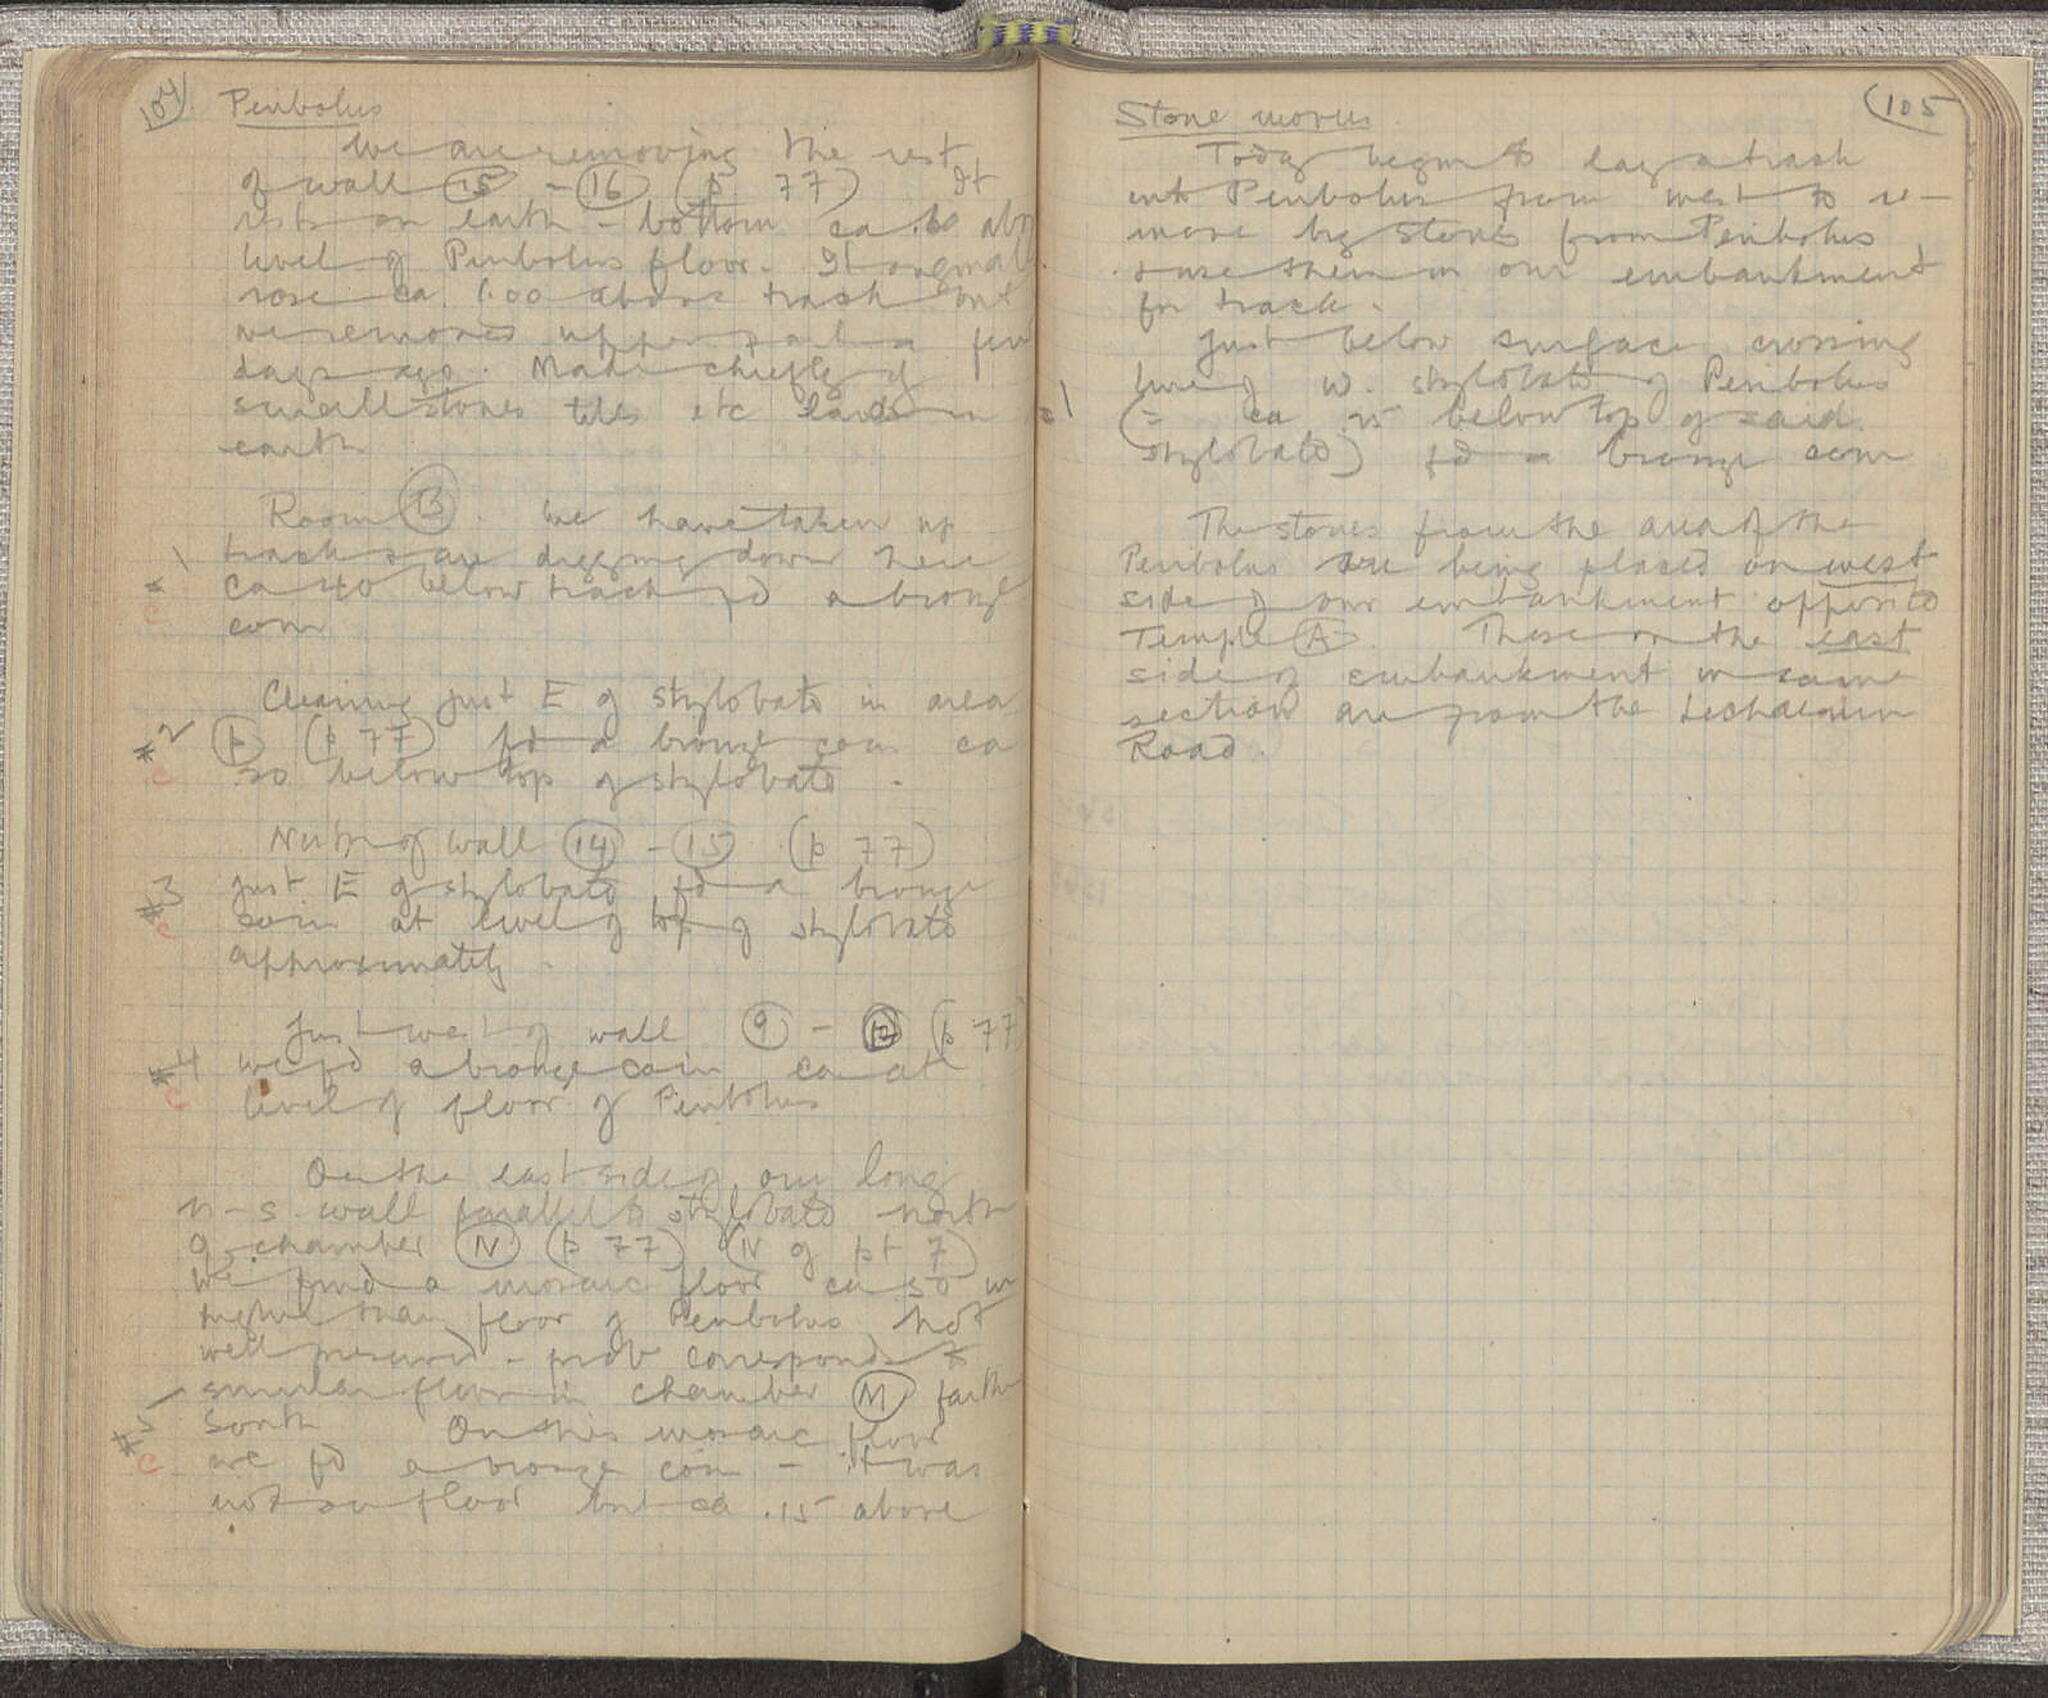 104
Peribolus
We are removing the rest
of wall 15 - 16 (p 77) It
rests on earth - bottom ca above
level of Peribolus floor. It originally
rose ca 1.00 above track but
we removed upper part a few
days ago. Made chiefly of
small stones tiles etc laid in
earth
Room B. We have taken up
track & are digging down here
*1 ca 40 below track fd a bronze
c coin
Cleaning just E of stylobate in area
*2 p (p 77) fd a bronze coin ca
c 20 below top of stylobate.
North of wall 14 - 15 (p 77)
*3 just E of stylobate fd a bronze
c coin at level of top of stylobate
approximately.
Just west of wall 9 - (p 77)
*4 we fd a bronze coin ca at
c level of floor of Peribolus
On the east side of our long
n-s wall parallel to stylobate north
of chamber IV (p 77) (IV of pt 7)
we find a mosaic floor ca 50 m
higher than floor of Peribolus. Not
well preserved - prob corresponds to
similar floor in chamber M farther
*5 south On this mosaic floor
c we fd a bronze coin - it was
not on floor but ca .15 above
105
Stone moving
Today begin to lay a track
into Peribolus from west to re-
move big stones from Peribolus
& use them in our embankment
for track.
Just below surface crossing
*1 line of w. stylobate of Peribolus
(= ca 25 below top of said
stylobate) fd a bronze coin
The stones from the area of the
Peribolus are being placed on west
side of our embankment opposite
Temple A. Those on the east
side of embankment in same
section are from the Lechaeum
Road.